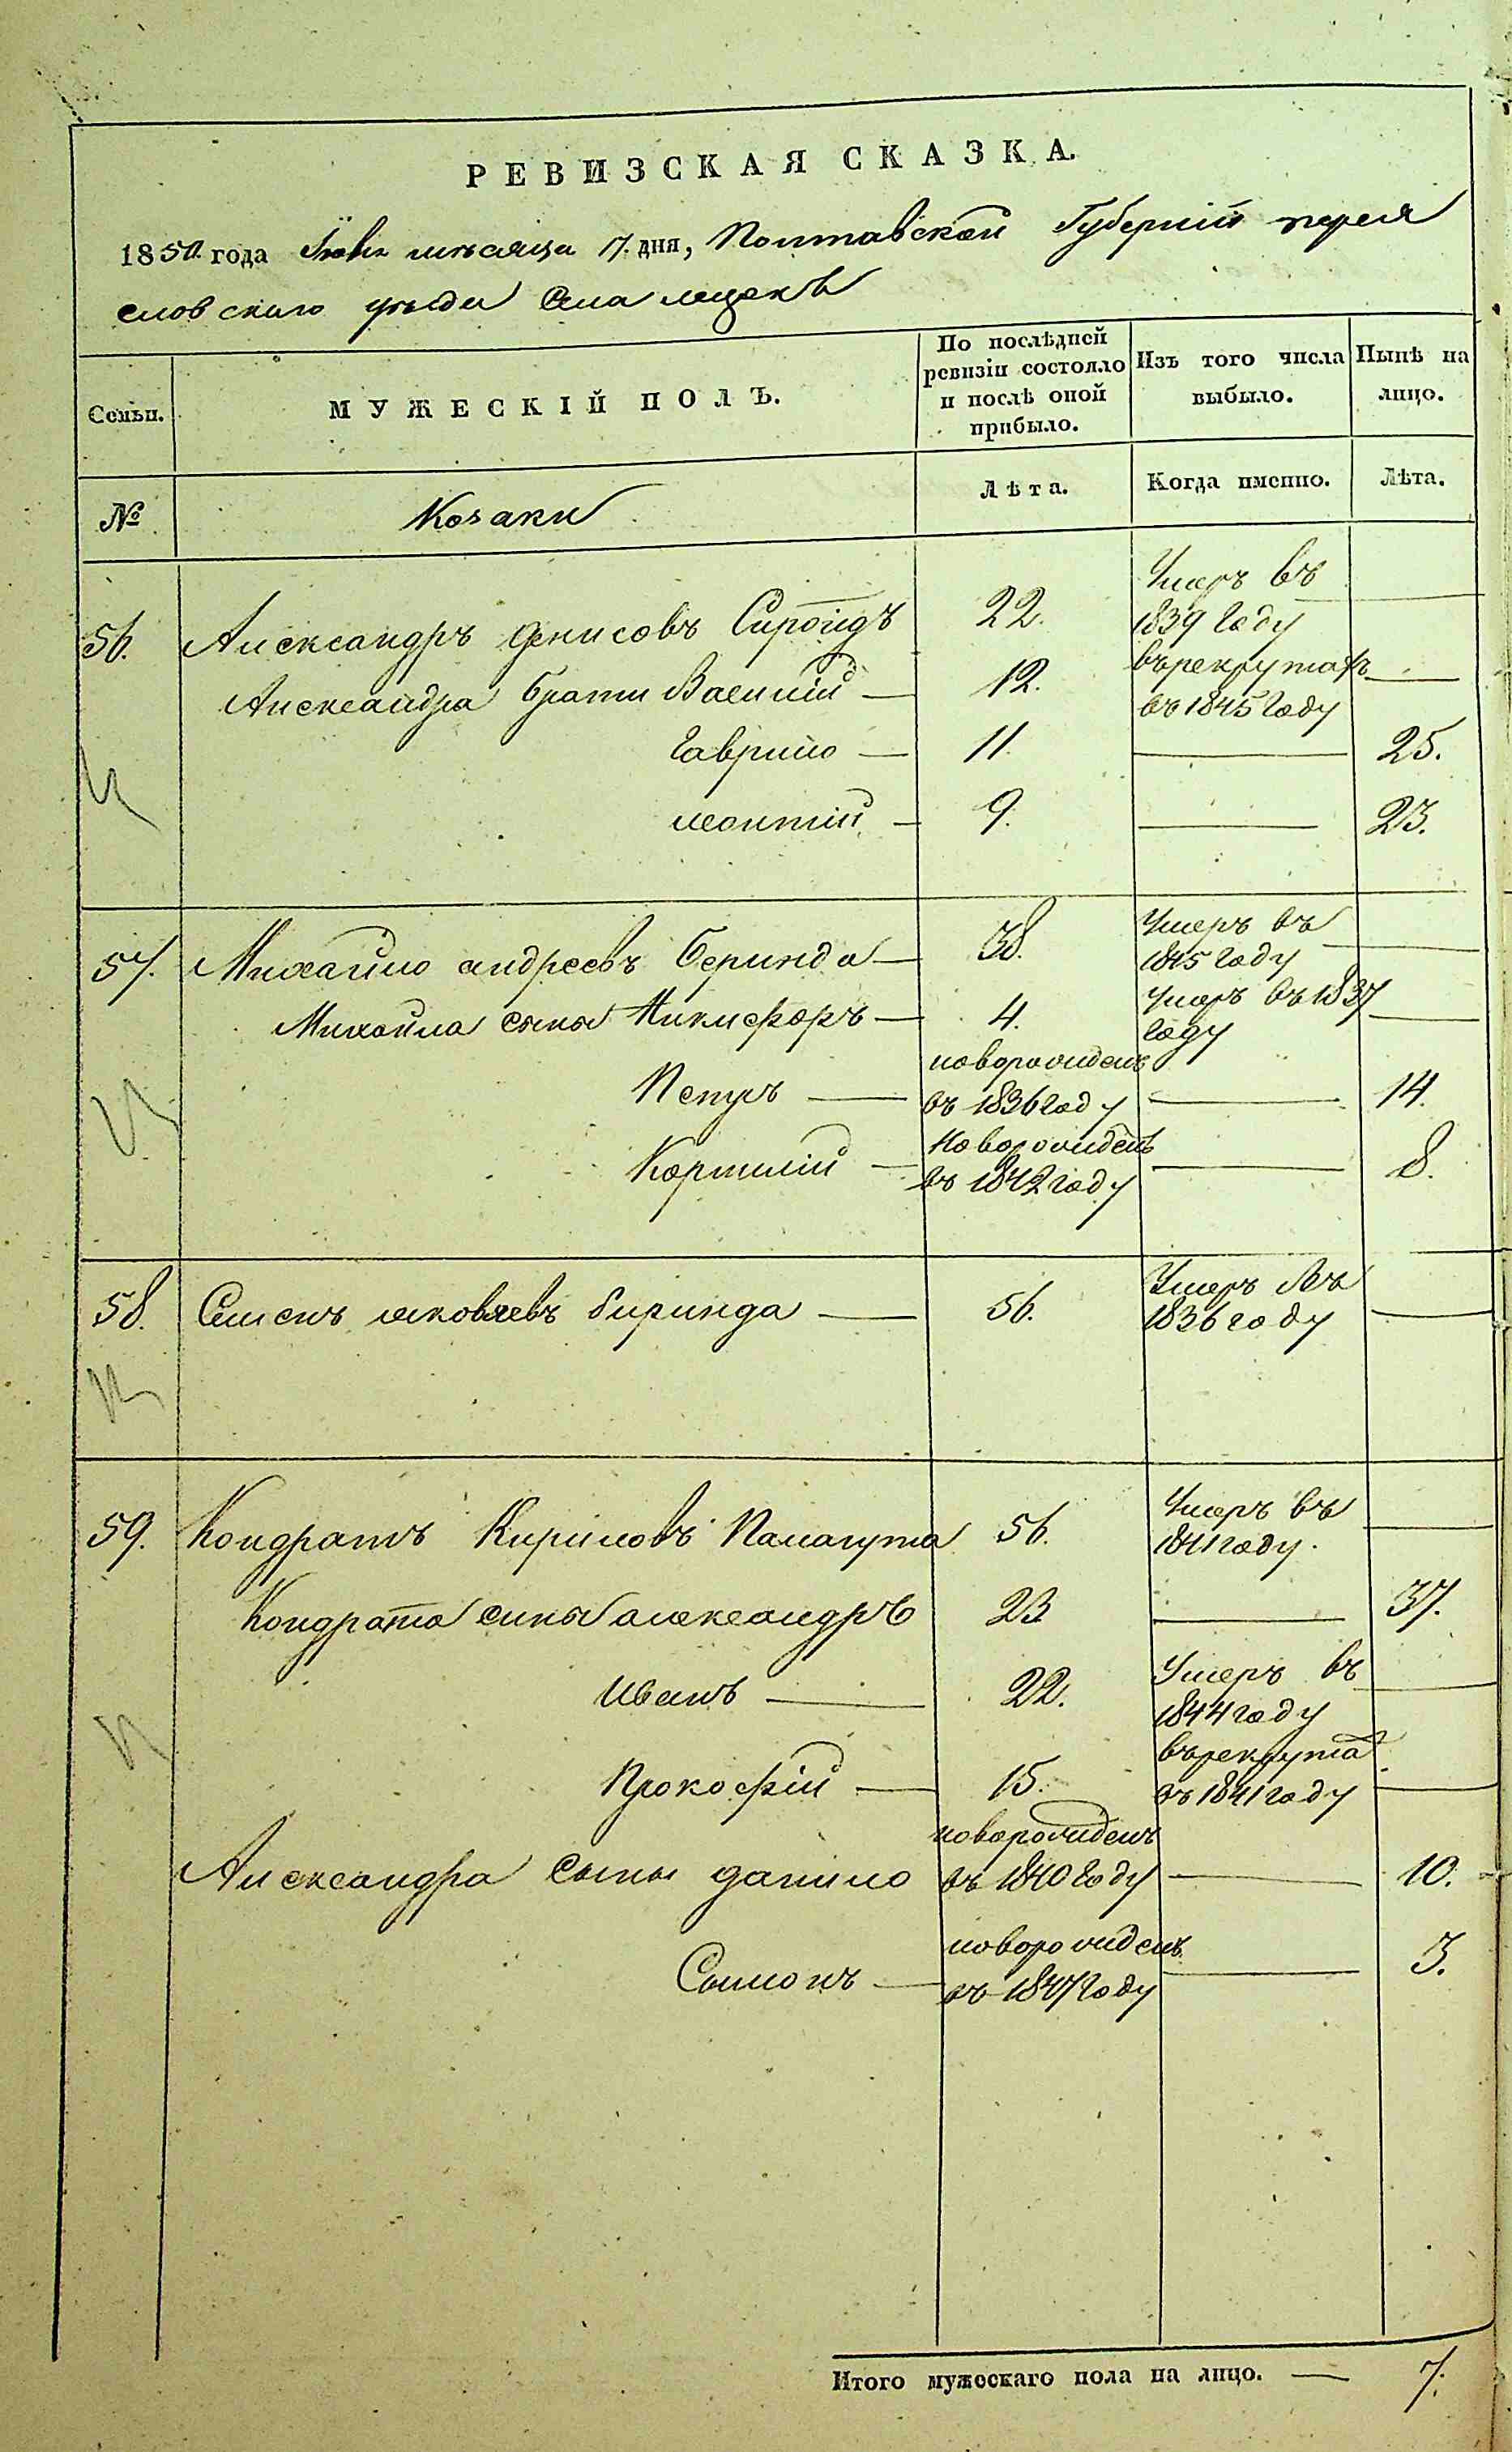 РЕВИЗСКАЯ СКАЗКА.
1850 года Июня мѣсяца 17 дня, Полтавской Губерніи перея
словского уѣзда Села
Семьи.
МУЖЕСКІЙ ПОЛЪ.
По послѣдней ревизіи состояло и послѣ оной прибыло.
Изъ того числа выбыло.
Нынѣ на лицо.
№
Козаки
Лѣта.
Когда именно.
Лѣта.
56. Александръ денисовъ Сироїдъ 22. Умеръ въ 1839 году —
Александра браты Василій — 12. въ рекрутахъ въ 1845 году —
Гаврило — 11. — 25.
леонтій — 9. — 23.
57. Михайло андреевъ беринда — 38. Умеръ въ 1845 году —
Михайла сыны Никифоръ — 4. Умеръ въ 1837 году —
Петръ — новорожденъ въ 1836 году — 14.
Корнилій — новорожденъ въ 1842 году — 8.
58. Семенъ яковлевъ биринда — 56. Умеръ въ 1836 году —
59. Кондратъ Кириловъ Паламута 56. Умеръ въ 1841 году. —
Кондрата сины александръ 23 — 37.
Иванъ — 22. Умеръ въ 1844 году —
Прокофій — 15. въ рекрута въ 1841 году —
Александра сыны данило новорожденъ въ 1840 году — 10.
Симонъ — новорожденъ въ 1847 году — 3.
Итого мужескаго пола на лицо. — 7.